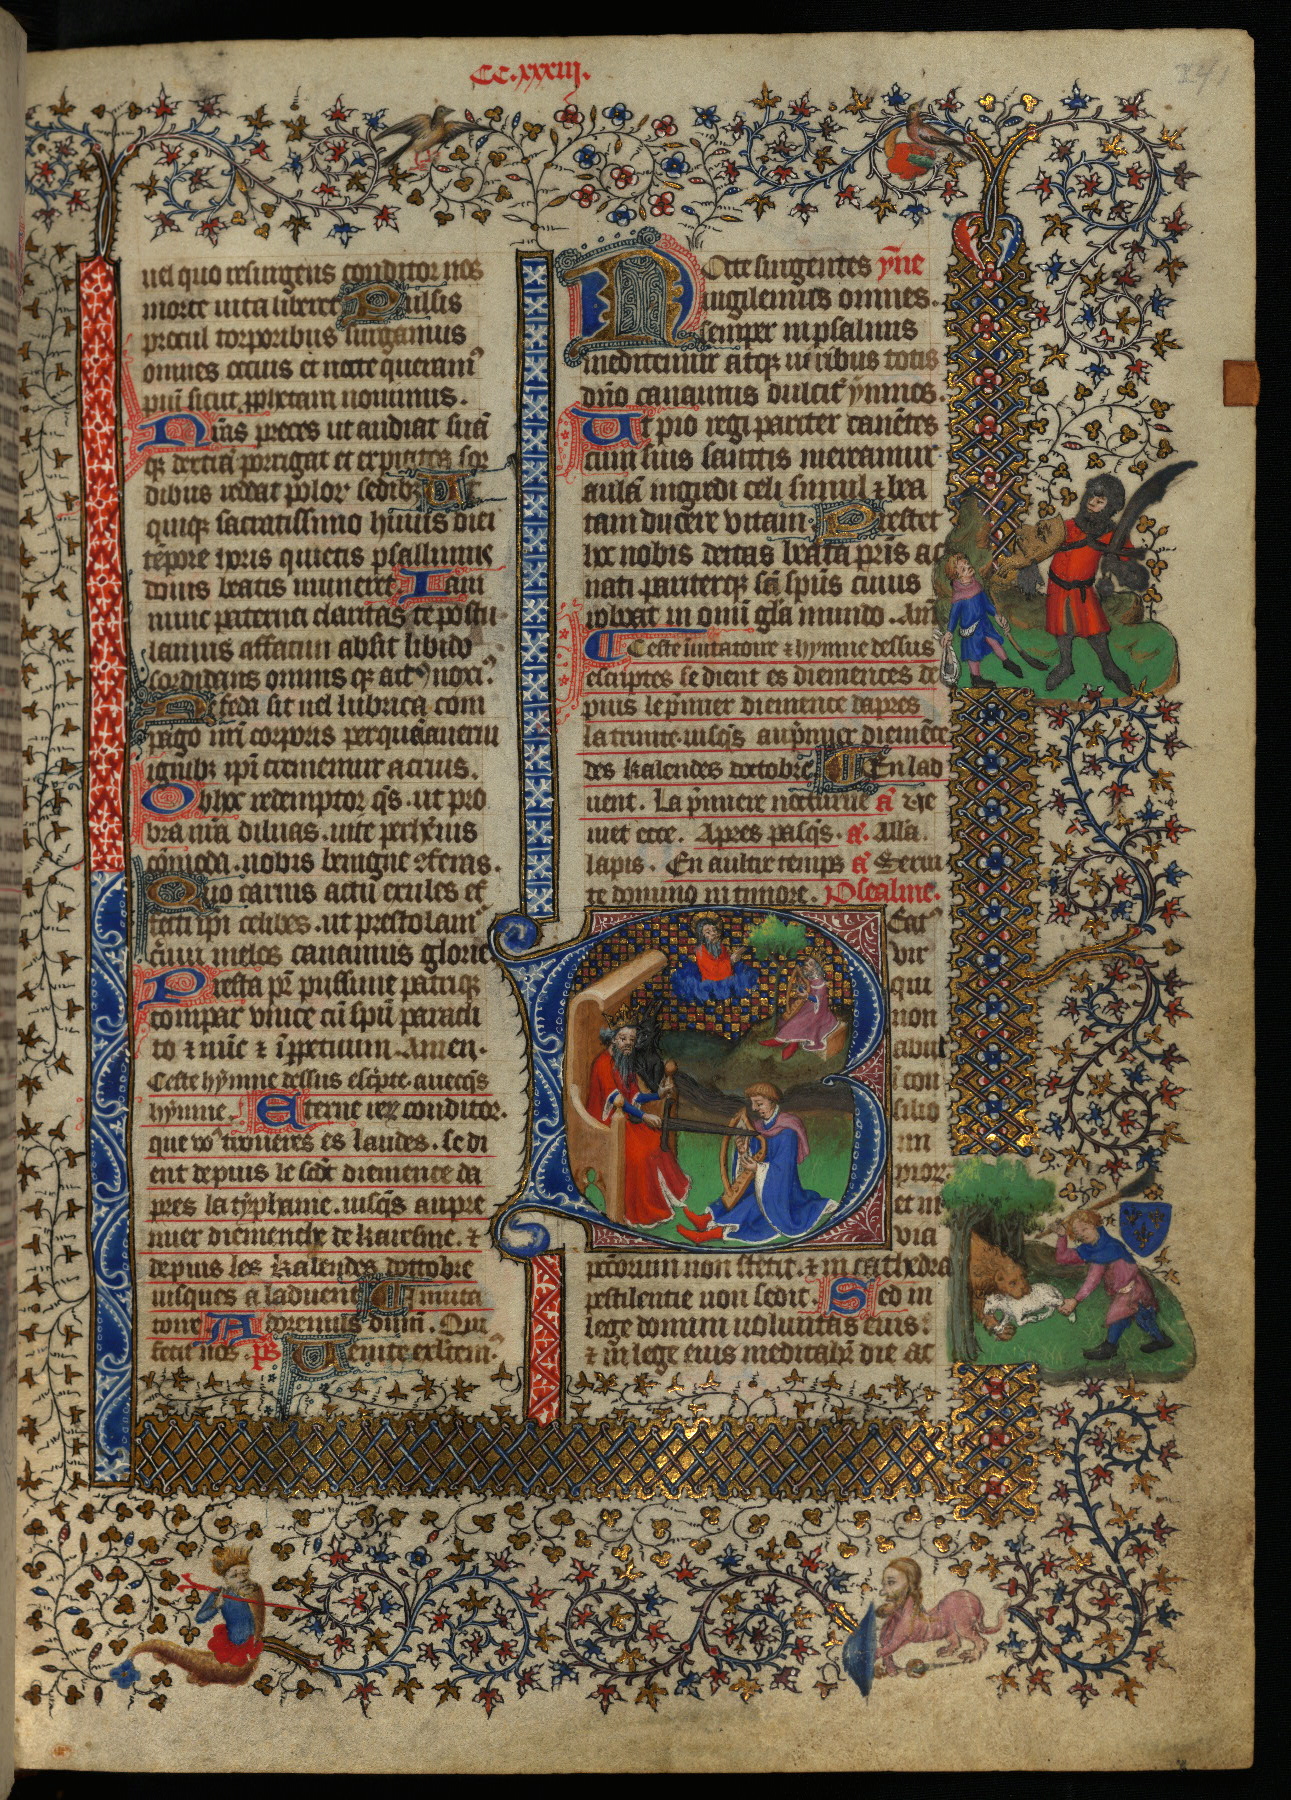 CC.xxxiij.
241
uel quo resurgens conditor nos
morte uicta liberet Pulsis
procul torporibus surgamus
omnes ocius et nocte queram⁹
pium sicut ꝓphetam nouimus.
Nr̃as preces ut audiat suã
qꝫ dextrã porrigat et expiatos sor
dibus reddat polorũ sedibꝫ Ut
quiqꝫ sacratissimo huius diei
tẽpore horis quietis psallimus
donis beatis muneret Iam
nunc paterna claritas te postu
lamus affatim absit libido
sordidans omnis qꝫ act⁹ noxi⁹
Ne feda sit uel lubrica com
pago nr̃i corporis per quã auerni
ignibꝫ ip̃i crememur acrius.
Ob hoc redemptor q̃s. ut pro
bra nr̃a diluas. uite perhennis
cõmoda. nobis benigne ꝯferas.
Quo carnis actu exules ef
fecti ip̃i celibes. ut prestolam⁹
cernui melos canamus glorie
Presta pr̃ piissime patriqꝫ
compar vnice cũ spũ paracli
to ⁊ nũc ⁊ ĩ ꝑpetuum. Amen.
Ceste hymne dessus esc̃pte. auecq̃s
hymne. Eterne rerꝫ conditor.
que vo⁹ trouueres es laudes. se di
ent depuis le scd̃ diemence da
pres la typhaine. iusq̃s au pre
mier diemenche de karesme. ⁊
depuis les kalendes dottobre
iusques a laduent Inuita
toire Adoremus dñm. Qui
fecit nos. ps Uenite exultem⁹
Nocte surgentes yñe
uigilemus omnes.
semper in psalmis
meditemur atqꝫ uiribus totis
dño canamus dulcit̃ ymnos.
Ut pio regi pariter canẽtes
cum suis sanctis mereamur
aulã ingredi celi simul ⁊ bea
tam ducere vitam Prestet
hoc nobis deitas beata pr̃is ac
nati pariterqꝫ sc̃i spũs cuius
reboat in omi gl̃a mundo. Am̃
Ceste inuitatoire ⁊ hymne dessus
escriptes se dient es diemences de
puis le p̃mier diemence dapres
la trinite. iusq̃s au p̃mier diemẽce
des kalendes doctobre En lad
uent. La p̃miere nocturne a᷃ Ve
niet ecce. Apres pasq̃s. a᷃. Alla.
lapis. En aultre temps a᷃ Serui
te domino in timore. Psealme.
Beat⁹
vir
qui
non
abiit
ĩ con
silio
im
pior.
et in
via
pc̃torum non stetit. ⁊ in cathedra
pestilentie non sedit. Sed in
lege domini uoluntas eius:
⁊ in lege eius meditabit̃ die ac